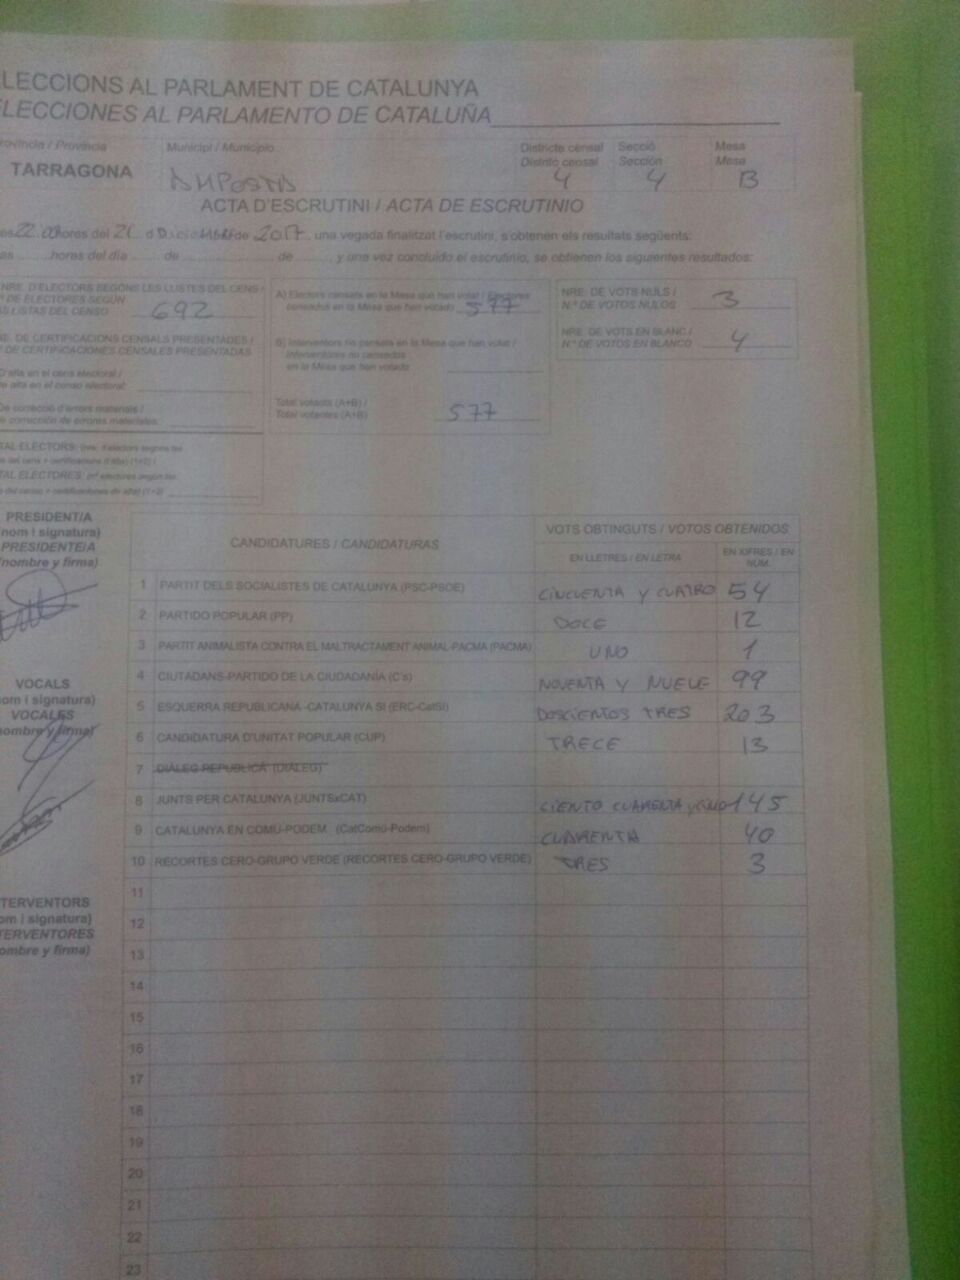 LECCIONS AL PARLAMENT DE CATALUNYA
ELECCIONES AL PARLAMENTO DE CATALUÑA
Província / Provincia Municipi / Municipio Districte censal Secció Mesa
Distrito censal Sección Mesa
TARRAGONA AMPOSTA 4 4 B
ACTA D'ESCRUTINI / ACTA DE ESCRUTINIO
hores del 21 d Diciembre de 2017, una vegada finalitzat l'escrutini, s'obtenen els resultats següents:
as horas del día de de y una vez concluido el escrutinio, se obtienen los siguientes resultados:
NRE. D'ELECTORS SEGONS LES LLISTES DEL CENS /
Nº DE ELECTORES SEGÚN
AS LISTAS DEL CENSO 692
RE. DE CERTIFICACIONS CENSALS PRESENTADES /
º DE CERTIFICACIONES CENSALES PRESENTADAS
D'alta en el cens electoral /
e alta en el censo electoral:
De correcció d'errors materials /
e corrección de errores materiales:
TAL ELECTORS: (nre. d'electors segons les
s del cens + certificacions d'alta) (1+2) /
TAL ELECTORES: (nº electores según las
s del censo + certificaciones de alta) (1+2)
A) Electors censats en la Mesa que han votat / Electores
censados en la Mesa que han votado 577
B) Interventors no censats en la Mesa que han votat /
Interventores no censados
en la Mesa que han votado
Total votants (A+B) /
Total votantes (A+B) 577
NRE. DE VOTS NULS /
N.º DE VOTOS NULOS 3
NRE. DE VOTS EN BLANC /
N.º DE VOTOS EN BLANCO 4
PRESIDENT/A
(nom i signatura)
PRESIDENTE/A
(nombre y firma)
VOCALS
nom i signatura)
VOCALES
nombre y firma)
TERVENTORS
om i signatura)
TERVENTORES
ombre y firma)
CANDIDATURES / CANDIDATURAS VOTS OBTINGUTS / VOTOS OBTENIDOS
EN LLETRES / EN LETRA EN XIFRES / EN NÚM.
1 PARTIT DELS SOCIALISTES DE CATALUNYA (PSC-PSOE) CINCUENTA y CUATRO 54
2 PARTIDO POPULAR (PP) DOCE 12
3 PARTIT ANIMALISTA CONTRA EL MALTRACTAMENT ANIMAL-PACMA (PACMA) UNO 1
4 CIUTADANS-PARTIDO DE LA CIUDADANÍA (C's) NOVENTA y NUEVE 99
5 ESQUERRA REPUBLICANA-CATALUNYA SÍ (ERC-CatSÍ) DOSCIENTOS TRES 203
6 CANDIDATURA D'UNITAT POPULAR (CUP) TRECE 13
7 DIÀLEG REPUBLICÀ (DIÀLEG)
8 JUNTS PER CATALUNYA (JUNTSxCAT) CIENTO CUARENTA y CINCO 145
9 CATALUNYA EN COMÚ-PODEM (CatComú-Podem) CUARENTA 40
10 RECORTES CERO-GRUPO VERDE (RECORTES CERO-GRUPO VERDE) TRES 3
11
12
13
14
15
16
17
18
19
20
21
22
23